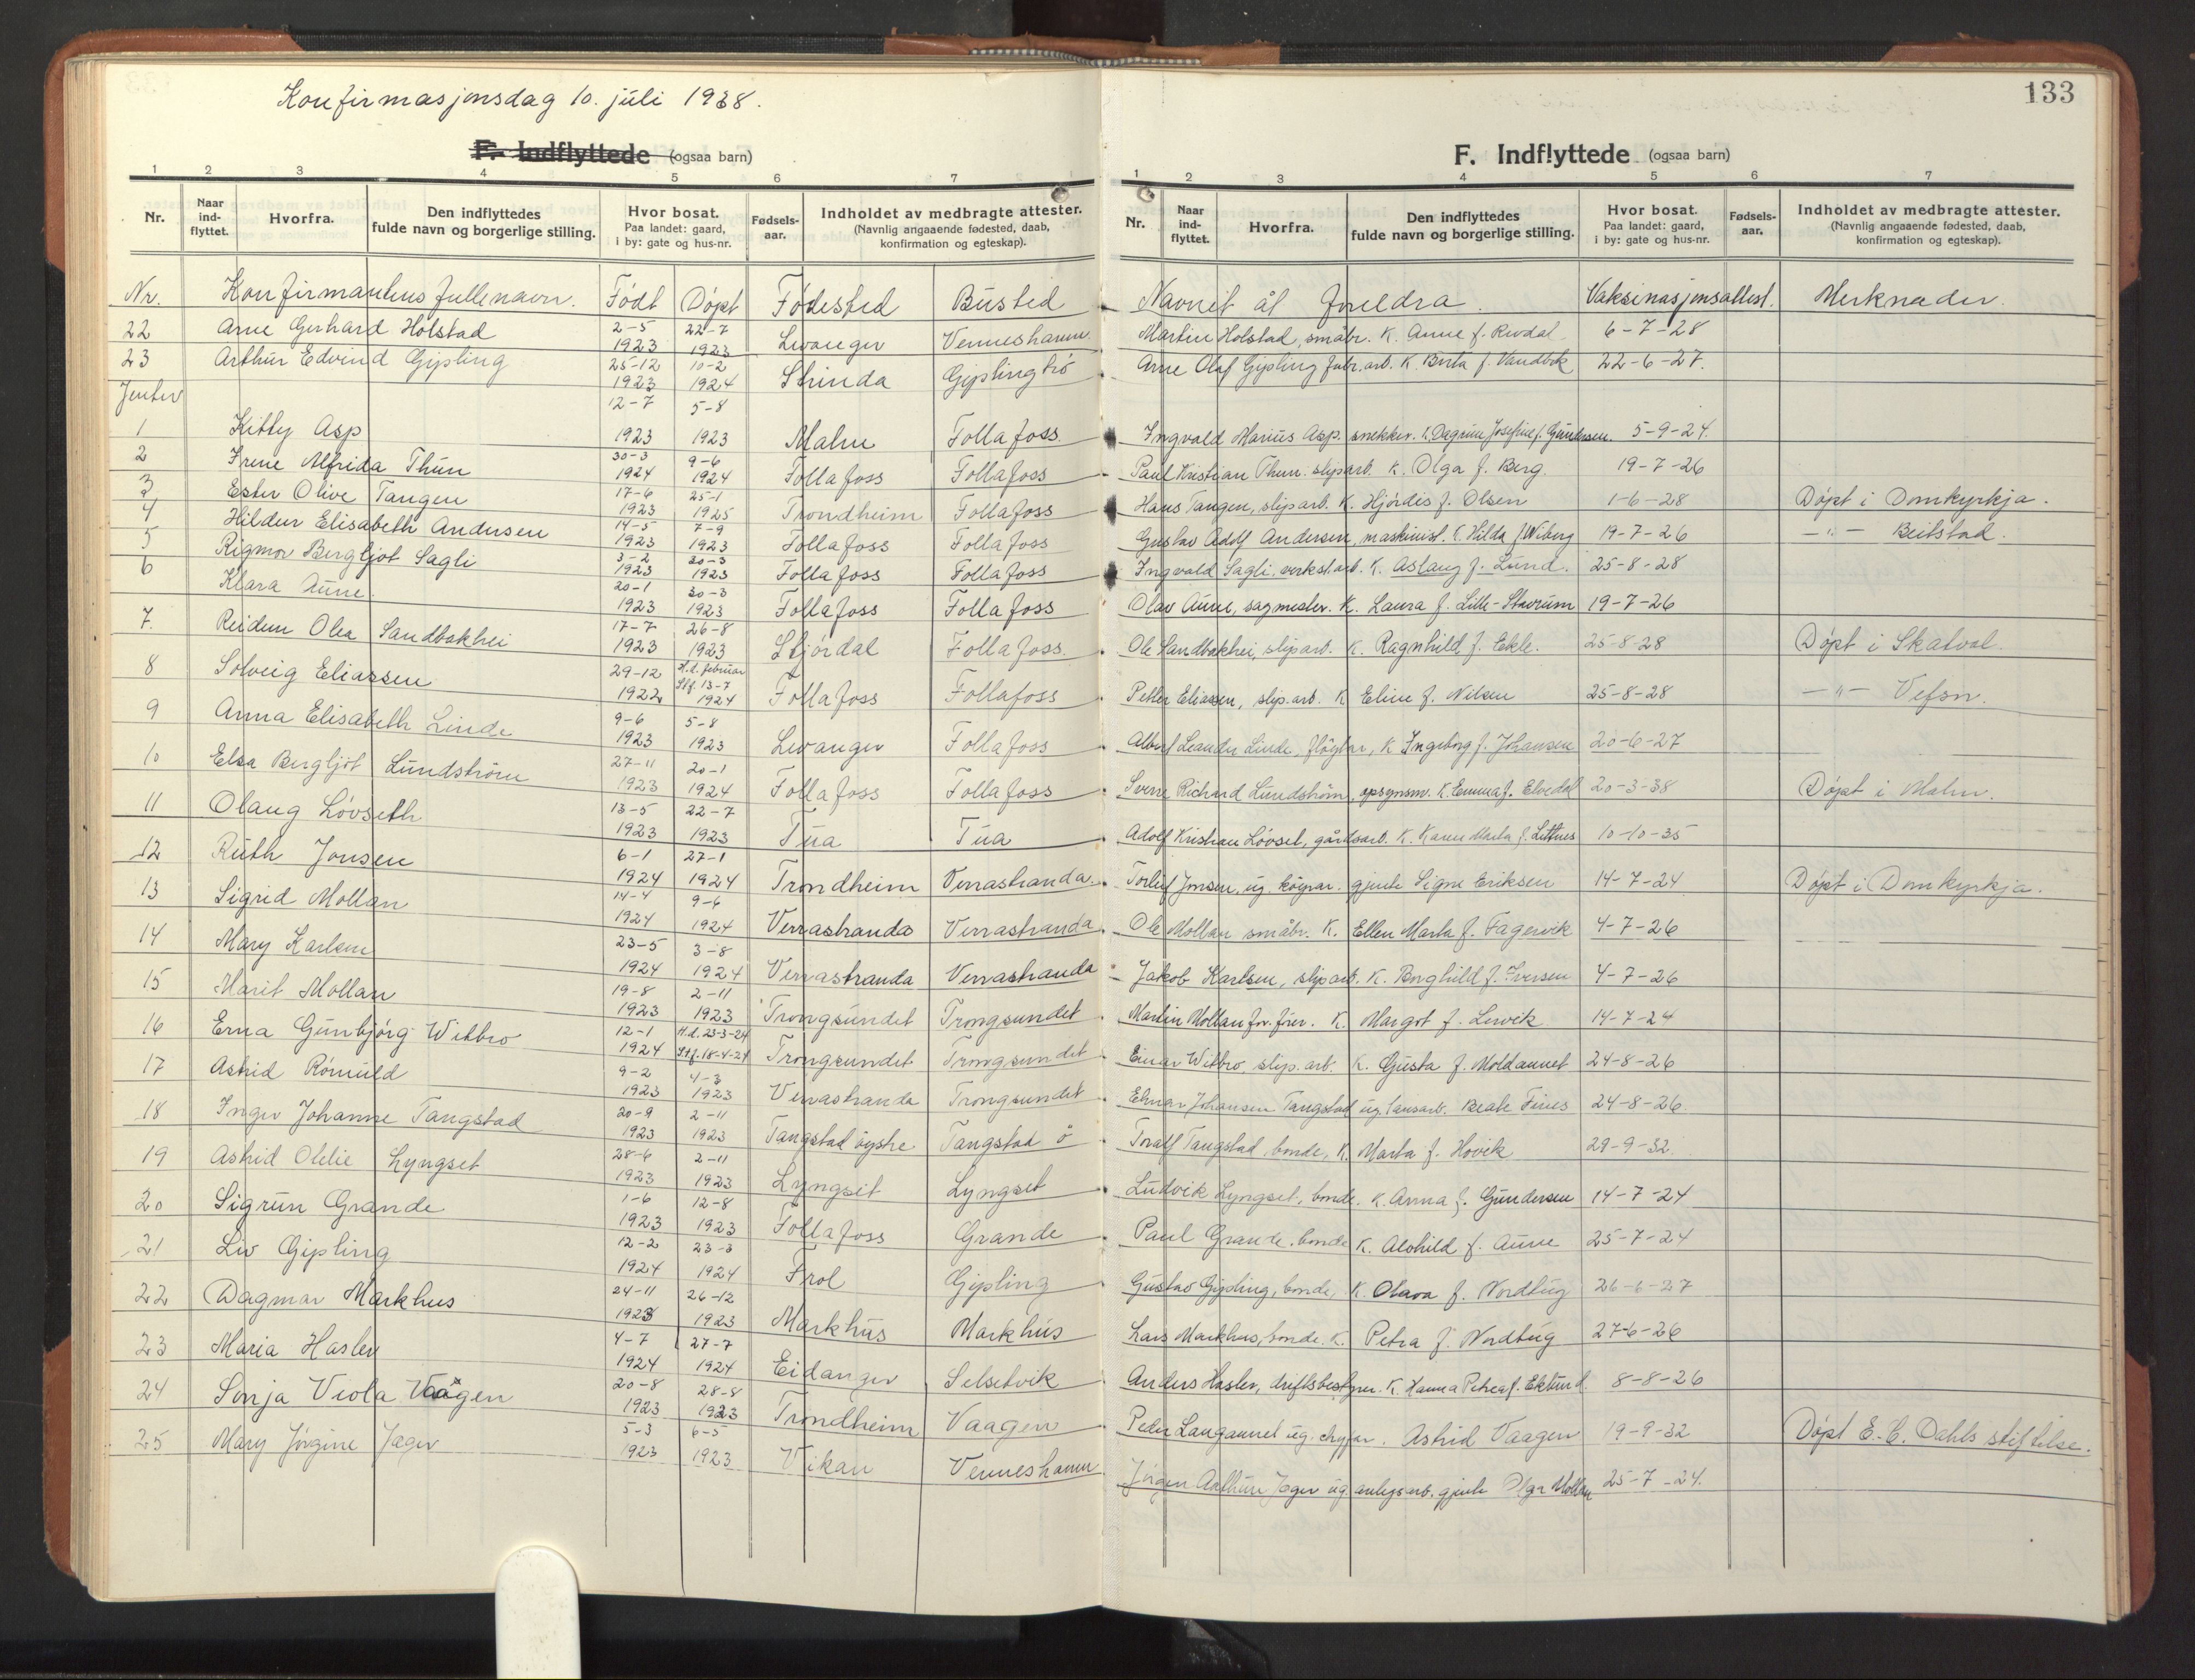 Konfirmasjonsdag 10. juli 1938.
133
F. Indflyttede (ogsaa barn)
F. Indflyttede (ogsaa barn)
1 2 3 4 5 6 7
1 2 3 4 5 6 7
Nr. Naar ind-flyttet. Hvorfra. Den indflyttedes fulde navn og borgerlige stilling. Hvor bosat. Paa landet: gaard, i by: gate og hus-nr. Fødsels-aar. Indholdet av medbragte attester. (Navnlig angaaende fødested, daab, konfirmation og egteskap).
Nr. Naar ind-flyttet. Hvorfra. Den indflyttedes fulde navn og borgerlige stilling. Hvor bosat. Paa landet: gaard, i by: gate og hus-nr. Fødsels-aar. Indholdet av medbragte attester. (Navnlig angaaende fødested, daab, konfirmation og egteskap).
Nr. Konfirmantens fulle navn. Født Døpt Fødested Busted Navnet åt foreldra. Vaksinasjonsattest. Merknader.
22 Arne Gerhard Holstad 2-5 1923 22-7 1923 Levanger Venneshamn Martin Holstad, småbr. K. Anne f. Revdal 6-7-28
23 Arthur Edvind Gipling 25-12 1923 10-2 1924 Strinda Giplingtrø Arne Olaf Gipling fabr.arb. K. Berta f. Vandbak 22-6-27.
Jenter
1 Kitty Asp 12-7 1923 5-8 1923 Malm Follafoss Ingvald Marius Asp. snekker. K. Dagrun Josefine f. Gundersen. 5-9-24.
2 Irene Alfrida Thun 30-3 1924 9-6 1924 Follafoss Follafoss Paul Kristian Thun. sliparb. K. Olga f. Berg. 19-7-26
3 Ester Olive Tangen 17-6 1923 25-1 1925 Trondheim Follafoss Hans Tangen, sliparb. K. Hjørdis f. Olsen 1-6-28 Døpt i Domkyrkja.
4 Hildur Elisabeth Andersen 14-5 1923 7-9 1923 Follafoss Follafoss Gustav Adolf Andersen, maskinist. K. Hilda f. Wiberg 19-7-26 -"- Beitstad.
5 Rigmor Bergljot Sagli 3-2 1923 20-3 1923 Follafoss Follafoss Ingvald Sagli, verkstarb. K. Aslaug f. Lund. 25-8-28
6 Klara Aune. 20-1 1923 30-3 1923 Follafoss Follafoss Olav Aune, sagmester. K. Laura f. Lille-Stavrum 19-7-26
7. Reidun Olea Sandbakhei 17-7 1923 26-8 1923 Stjørdal Follafoss. Ole Sandbakhei, sliparb. K. Ragnhild f. Ekle. 25-8-28 Døpt i Skatval.
8 Solveig Eliassen 29-12 1922 H.d. februar Stf. 13-7 1924 Follafoss Follafoss Petter Eliassen, slip.arb. K Eline f. Nilsen 25-8-28 -"- Vefsn.
9 Anna Elisabeth Linde 9-6 1923 5-8 1923 Levanger Follafoss Leander Linde, fløytar, K Ingeborg f. Johansen 20-6-27
10 Elsa Bergljot Lundstrøm 27-11 1923 20-1 1924 Follafoss Follafoss Sverre Richard Lundstrøm, opsynsm. K. Emma f. Elvedal 20-3-38 Døpt i Malm.
11 Olaug Løvseth 13-5 1923 22-7 1923 Tua Tua Adolf Kristian Løvset, gårdsarb. K. Karen Marta f. 10-10-35
12 Ruth Jonsen 6-1 1924 27-1 1924 Trondheim Verrastranda. Torleif Jonsen, ug. gjente Signe Eriksen 14-7-24 Døpt i Domkyrkja.
13 Sigrid Mollan 14-4 1924 9-6 1924 Verrastranda Verrastranda. Ole Mollan småbr. K. Ellen Marta f. Fagervik 4-7-26
14 Mary Karlsen 23-5 1924 3-8 1924 Verrastranda Verrastranda Jakob Karlsen, sliparb. K. Borghild f. Iversen 4-7-26
15 Marit Mollan 19-8 1923 2-11 1923 Trongsundet Trongsundet Martin Mollan K. Margot f. Lervik 14-7-24
16 Erna Gunbjørg Witbro 12-1 1924 H.d. 23-3-24 Stf. 18-4-24 Trongsundet Trongsundet Einar Witbro, slip.arb. K. Gusta f. Moldaunet 24-8-26
17 Astrid Rømuld 9-2 1923 4-3 1923 Verrastranda Trongsundet Johansen Tangstad ug. Beate Fines 24-8-26.
18 Inger Johanne Tangstad 20-9 1923 2-11 1923 Tangstad øystre Tangstad ø Toralf Tangstad, bonde, K. Marta f. Hovik 29-9-32.
19 Astrid Otelie Lyngset 28-6 1923 2-11 1923 Lyngset Lyngset Ludvik Lyngset, bonde. K. Anna f. Gundersen 14-7-24
20 Sigrun Grande 1-6 1923 12-8 1923 Follafoss Grande Paul Grande, bonde K. Alvhild f. Aune 25-7-24
21 Liv Gipling 12-2 1924 23-3 1924 Frol Gipling Gustav Gipling, bonde, K. Olava f. Nordtug 26-6-27
22 Dagmar Markhus 24-11 1923 26-12 1923 Markhus Markhus Lars Markhus, bonde. K. Petra f. Nordtug 27-6-26
23 Maria Hasler 4-7 1924 27-7 1924 Eidanger Selsetvik Anders Hasler, driftsbestyrer. K. Hanna Petrea f. Eklund. 8-8-26
24 Sonja Viola Vaagen 20-8 1923 28-8 1923 Trondheim Vaagen Peder Langaunet ug. Astrid Vaagen 19-9-32 Døpt E. C. Dahls stiftelse.
25 Mary Jørgine Jager 5-3 1923 6-5 1923 Vikan Venneshamn Jørgen Arthur Jager ug. anlegsarb. gjente Olga Mollan 25-7-24.